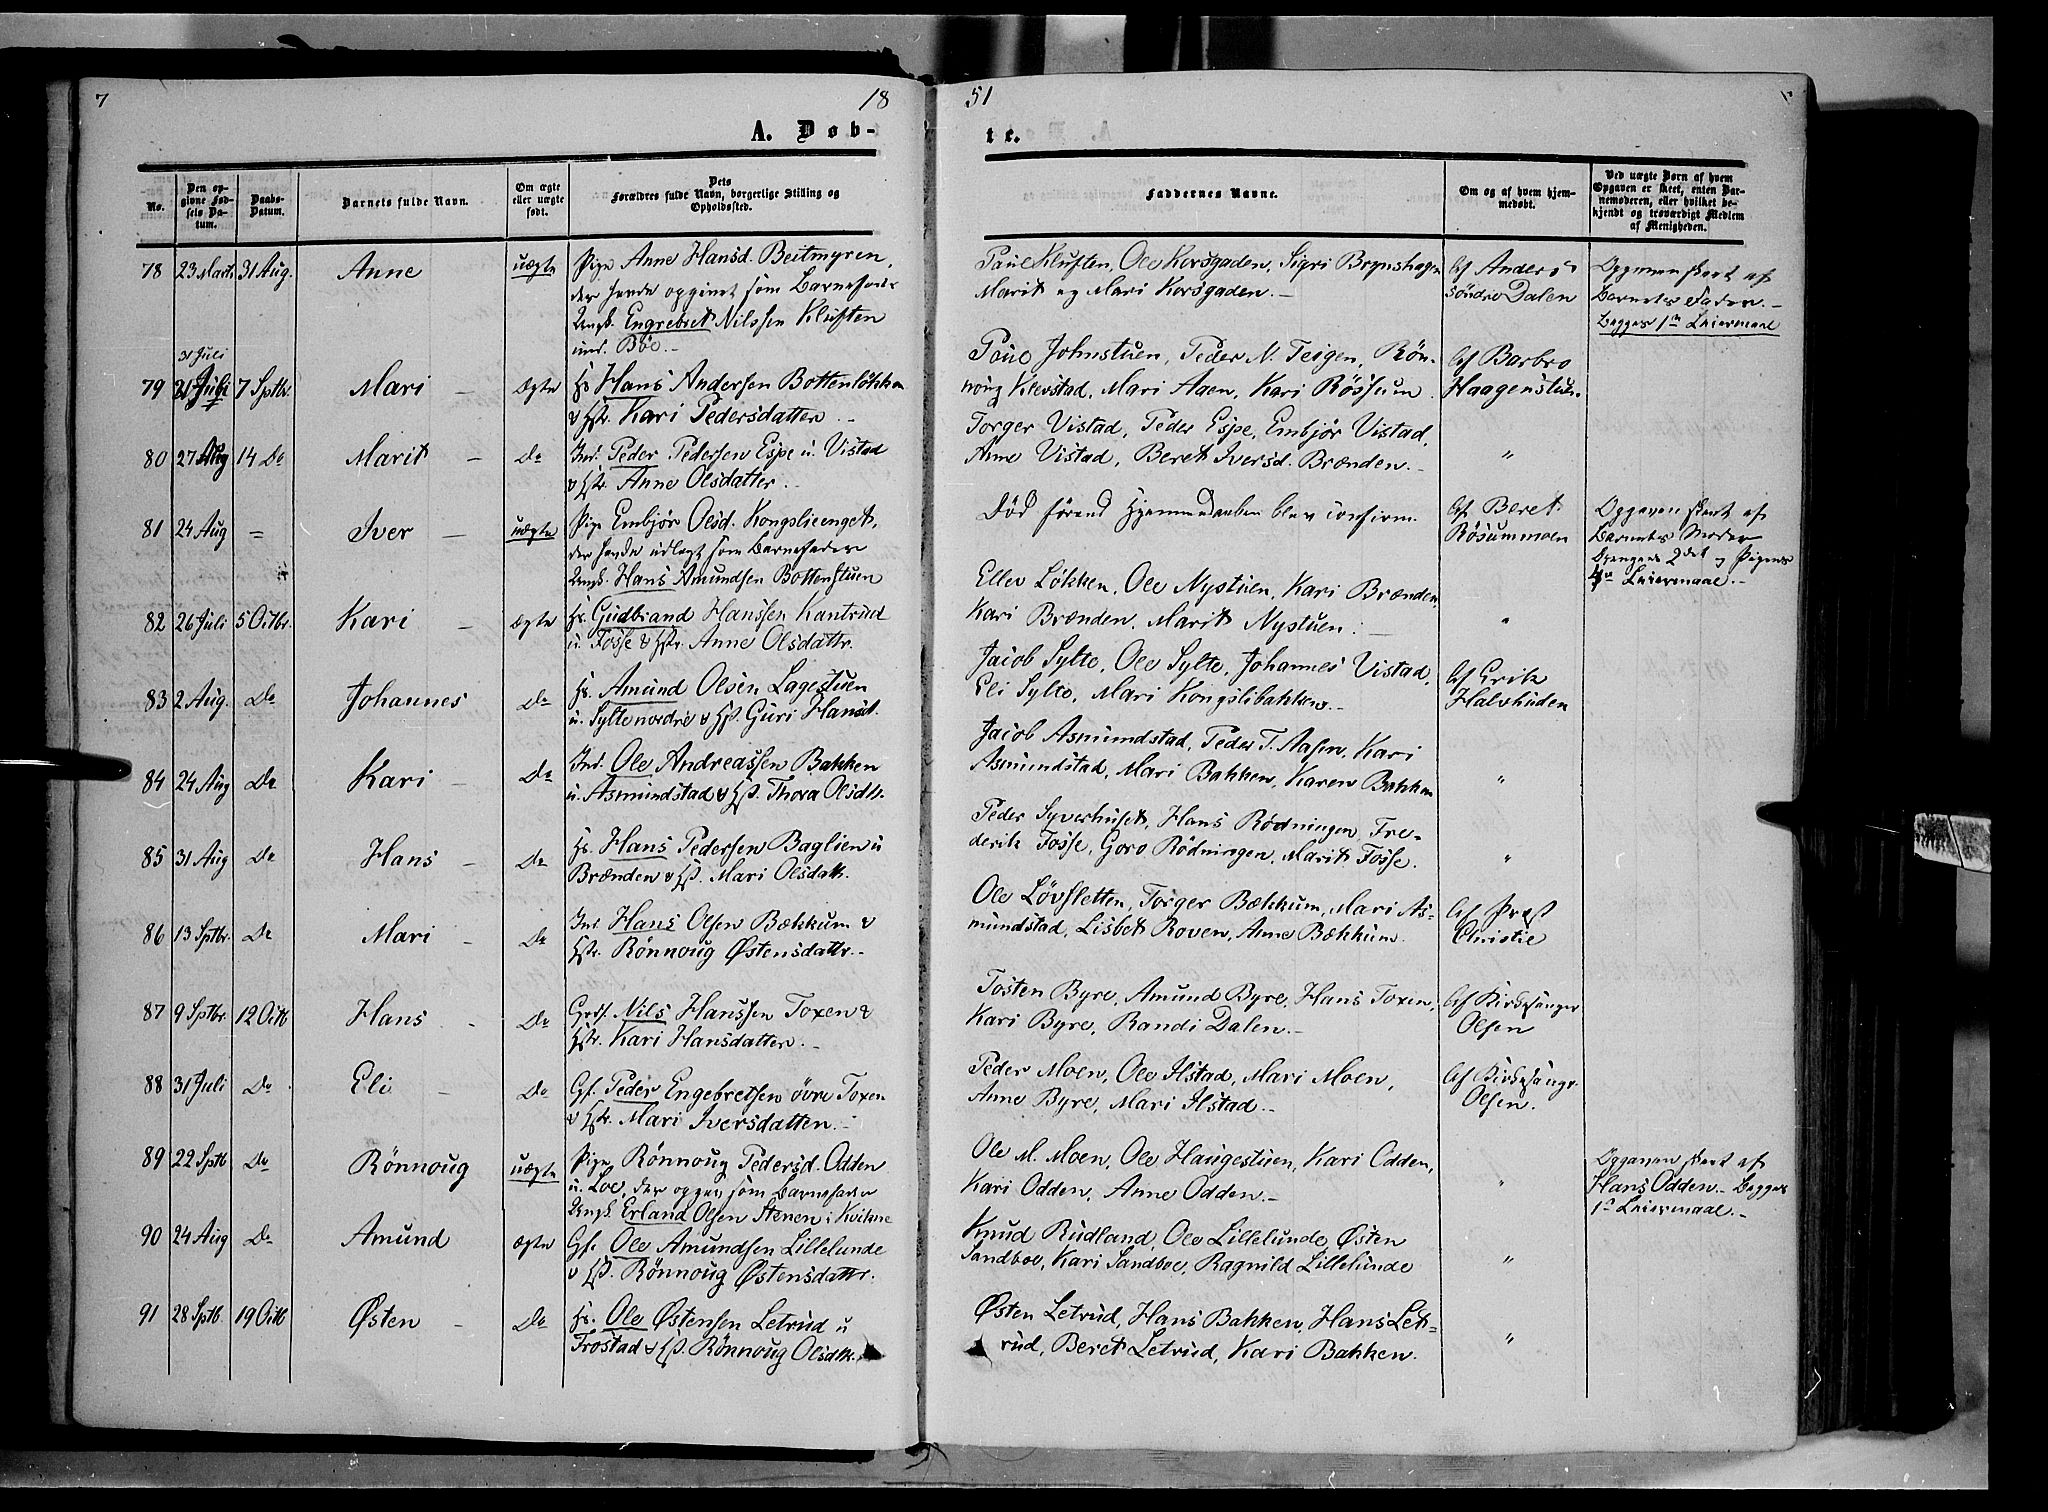 7 18 51
A. Døb- te.
No.
Den opgivne Fødsels Datum.
Daabs-Datum.
Barnets fulde Navn.
Om ægte eller uægte født.
Dets Forældres fulde Navn, borgerlige Stilling og Opholdssted.
Faddernes Navne.
Om og af hvem hjemmedøbt.
Ved uægte Børn af hvem Opgaven er skeet, enten Barnemoderen, eller hvilket bekjendt og troværdigt Medlem af Menigheden.
78 23 Marts 31 Aug. Anne uægte Pige Anne Hansd. Beitmyren,
der havde opgivet som Barnefader
Ungk. Engebret Nilssen Kluften
und. Böe.
Poul Kluften, Ole Korsgaden, Sigri Brynshagen
Marit og Mari Korsgaden.
Af Anders
söndre Dalen
Opgaven skeet af
Barnets Fader.
Begges 1ste Leiermaal
31 Juli
79 21 Juli 7 Sptbr. Mari ægte Hs Hans Andersen Bottenlökken
& Hstr. Kari Pedersdatter.
Poul Johnstuen, Peder N. Teigen, Rön-
noug Klevstad, Mari Aaen, Kari Rössum.
Af Barbro
Haagenstuen.
80 27 Aug 14 Do Marit Do Ind. Peder Pedersen Espe u. Vistad
& Hstr. Anne Olsdatter.
Torger Vistad, Peder Espe, Embjör Vistad,
Anne Vistad, Beret Iversd. Brænden.
"
81 24 Aug = Iver uægte Pige Embjör Olsd. Kongslieenget,
der havde udlagt som Barnefader
Ungk. Hans Amundsen Bottenstuen
Död förend Hjemmedaaben blev confirm.
Af Beret
Rösummoen
Opgaven skeet af
Barnets Moder
Drengens 2det og Pigens
Leiermaal.
82 26 Juli 5 Octbr. Kari ægte Hs. Gudbrand Hanssen Kantrud
u. Fosse & Hstr. Anne Olsdattr.
Ellev Lökken, Ole Nystuen, Kari Brænden,
Kari Brænden, Marit Nystuen.
"
83 2 Aug. Do Johannes Do Hs. Amund Olsen Lagestuen
u. Sylte nordre & Hst. Guri Hansd.
Jacob Sylte, Ole Sylte, Johannes Vistad,
Eli Sylte, Mari Kongslibakken.
Af Erik
Halvhuden
84 24 Aug Do Kari Do Ind. Ole Andreassen Bakken
u. Asmundstad & Hst. Thora Olsdtr.
Jacob Asmundstad, Peder T. Aasen, Kari
Asmundstad, Mari Bakken, Karen Bakken
"
85 31 Aug Do Hans Do Hs. Hans Pedersen Baglien u
Brænden & Hst. Mari Olsdatr.
Peder Syverhuset, Hans Rödningen, Fre-
derik Fosse, Goro Rödningen, Marit Fosse.
"
86 13 Sptbr. Do Mari Do Ind. Hans Olsen Bækkum &
Hstr. Rönnoug Østensdattr.
Ole Lövsletten, Torger Bækkum, Mari As-
mundstad, Lisbet Roven, Anne Bækkum.
Af Præst
Christie
87 9 Sptbr. 12 Octb Hans Do Grdf. Nils Hanssen Toxen &
Hstr. Kari Hansdatter.
Tosten Byre, Amund Byre, Hans Toxen,
Kari Byre, Randi Dalen.
Af Kirkesanger
Olsen
88 31 Juli Do Eli Do Gf. Peder Engebretsen övre Toxen
& Hstr. Mari Iversdatter.
Peder Moen, Ole Ilstad, Mari Moen,
Anne Byre, Mari Ilstad.
Af Kirkesangr.
Olsen.
89 22 Sptb Do Rönnoug uægte Pige Rönnoug Pedersd. Odden
u. Loe, der opgav som Barnefader
Ungk. Erland Olsen Stenen i Kvikne
Ole M. Moen, Ole Haugestuen, Kari Odden,
Kari Odden, Anne Odden.
"
Opgaven skeet af
Hans Odden. Begges
1ste Leiermaal.
90 24 Aug Do Amund ægte Gf. Ole Amundsen Lillelunde
& Hst. Rönnoug Østensdattr.
Knud Rudland, Ole Lillelunde, Østen
Sandboe, Kari Sandboe, Ragnild Lillelunde
"
91 28 Sptb. 19 Octb Østen Do Hs. Ole Østensen Letrud u
Frostad & Hst. Rönnoug Olsdtr.
Østen Letrud, Hans Bakken, Hans Let-
rud, Beret Letrud, Kari Bakken.
"